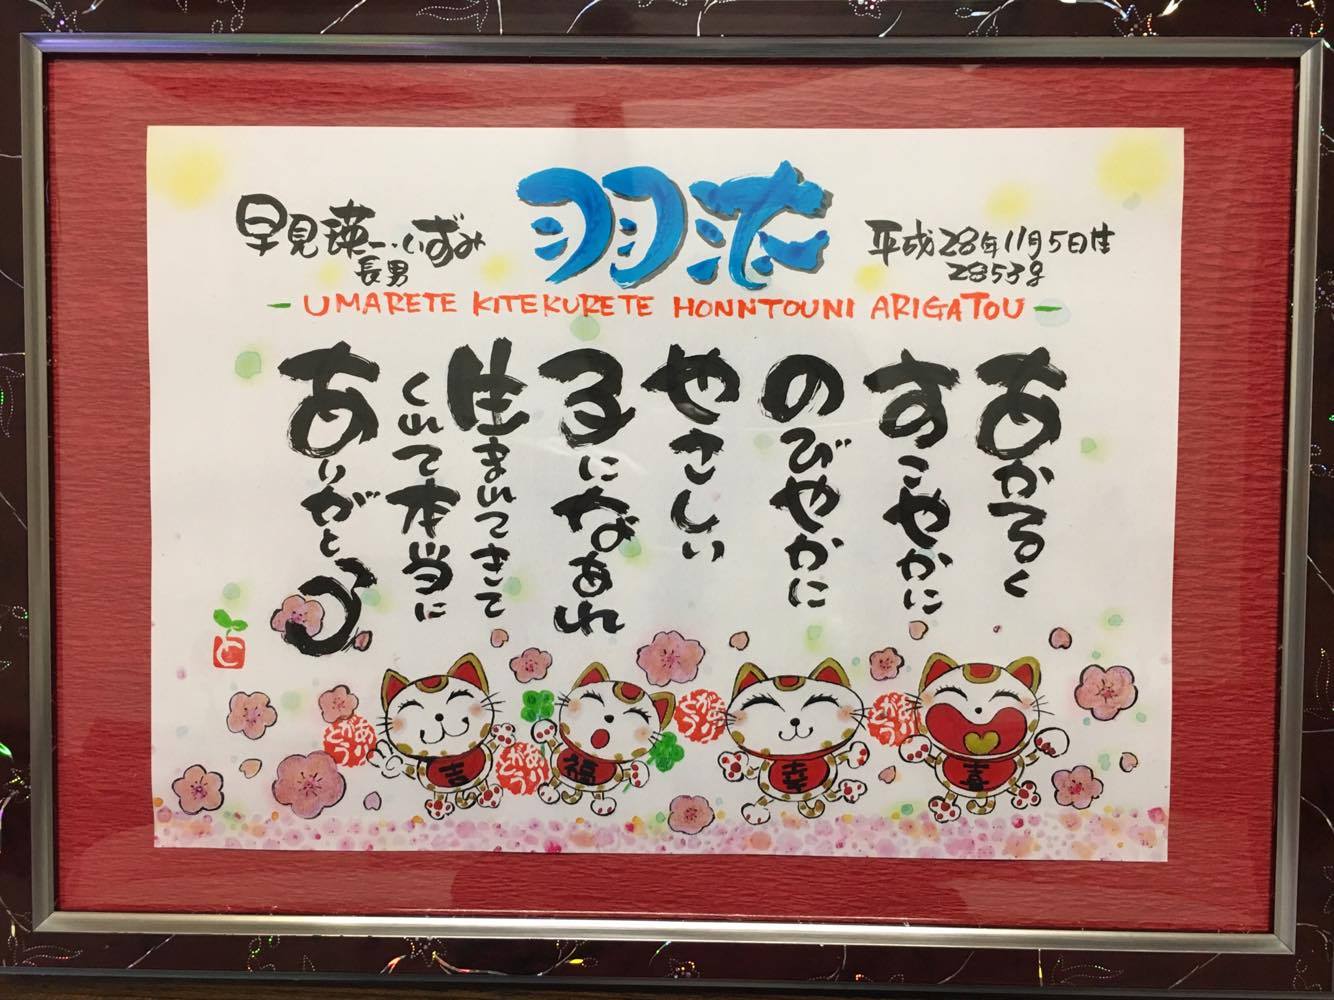 羽
早見瑛一・いずみ
長男
平成28年11月5日生
2853g
- UMARETE KITEKURETE HONNTOUNI ARIGATOU -
あかるく
すこやかに
のびやかに
やさしい
子になあれ
生まれてきて
くれて本当に
ありがとう
と
ありがとう
吉
ありがとう
福
ありがとう
幸
ありがとう
喜